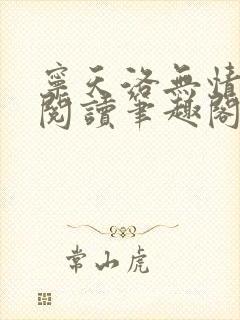 寧天洛無情
閱讀筆趣閣
常山虎